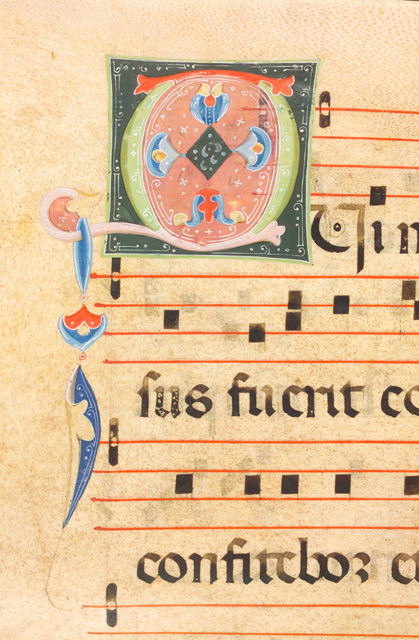 QUi m
sus fuerit co
confitebor e